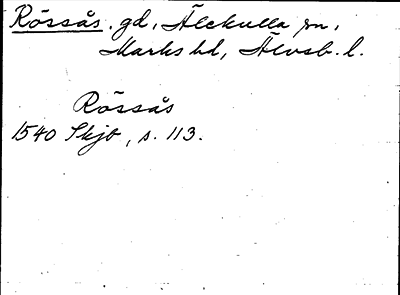 Rössås. gd, Älekulla sn,
Marks hd, Älvsb. l.
Rössås
1540 Skjb, s. 113.